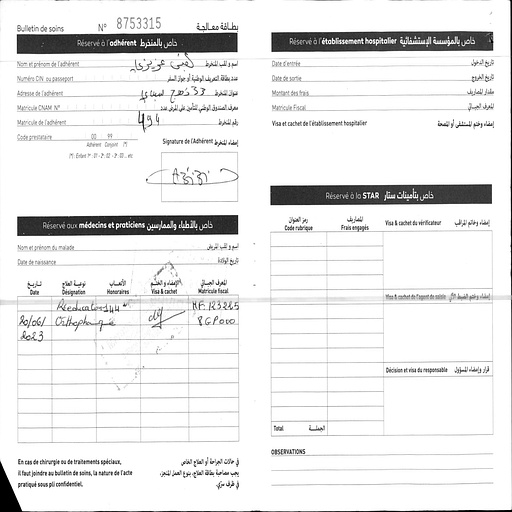 Bulletin de soins N° 8753315 بطاقة معالجة
Réservé à l'adhérent خاص بالمنخرط
Nom et prénom de l'adhérent اسم و لقب المنخرط
Numéro CIN ou passeport عدد بطاقة التعريف الوطنية أو جواز السفر
Adresse de l'adhérent عنوان المنخرط
Matricule CNAM N° معرف الصندوق الوطني للتأمين على المرض عدد
Matricule de l'adhérent 494 رقم المنخرط
Code prestataire 00 99
Adhérent Conjoint (*)
(*) : Enfant 1er : 01 - 2è : 02 - 3è : 03 .. etc
Signature de l'Adhérent إمضاء المنخرط
Réservé aux médecins et praticiens خاص بالأطباء والممارسين
Nom et prénom du malade اسم و لقب المريض
Date de naissance تاريخ الولادة
تاريخ نوعية العلاج الأتعاب الإمضاء و الختم المعرف الجبائي
Date Désignation Honoraires Visa & cachet Matricule fiscal
20/06/2023
En cas de chirurgie ou de traitements spéciaux,
il faut joindre au bulletin de soins, la nature de l'acte
pratiqué sous pli confidentiel.
في حالات الجراحة أو العلاج الخاص
يجب مصاحبة بطاقة العلاج، بنوع العمل المنجز،
في ظرف سري.
Réservé à l'établissement hospitalier خاص بالمؤسسة الإستشفائية
Date d'entrée تاريخ الدخول
Date de sortie تاريخ الخروج
Montant des frais مقدار المصاريف
Matricule Fiscal المعرف الجبائي
Visa et cachet de l'établissement hospitalier إمضاء وختم المستشفى أو المصحة
Réservé à la STAR خاص بتأمينات ستار
رمز العنوان المصاريف
Code rubrique Frais engagés
Visa & cachet du vérificateur إمضاء وخاتم المراقب
Visa & cachet de l'agent de saisie
Décision et visa du responsable قرار وإمضاء المسؤول
Total الجملة
OBSERVATIONS